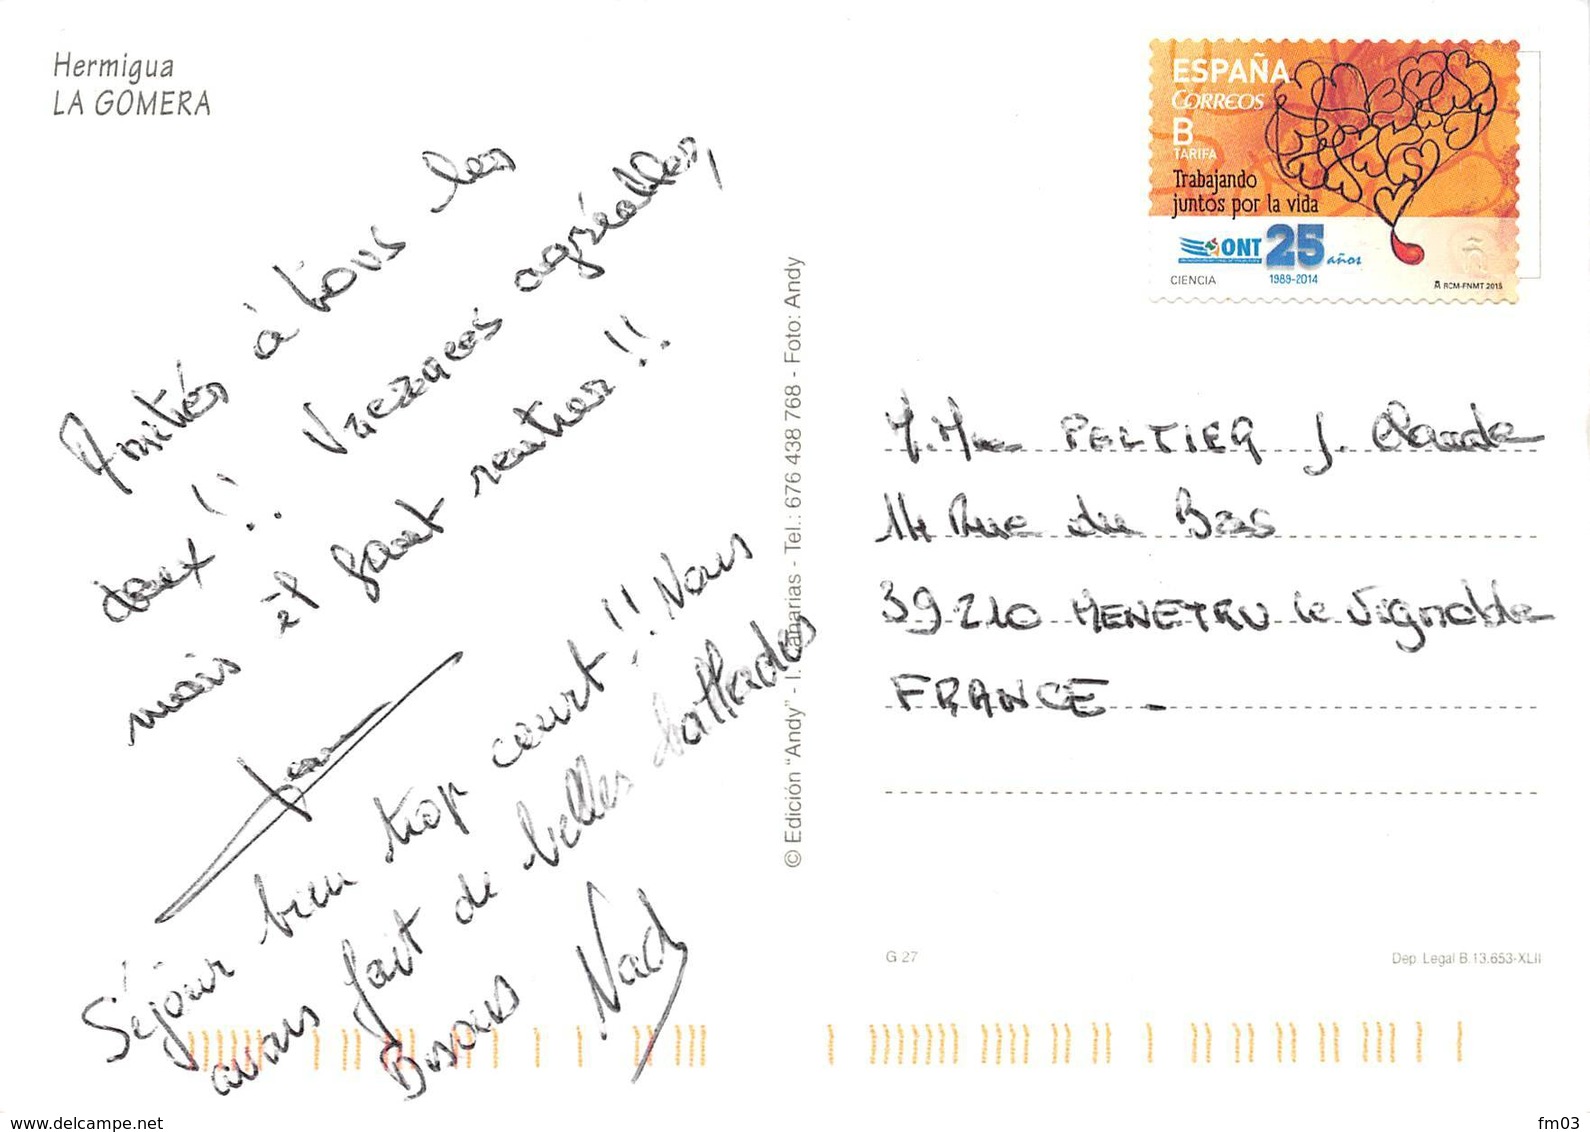 Hermigua
LA GOMERA
Amitiés à tous les
deux !! Vacances agréables,
mais il faut rentrer !!
Séjour bien trop court !! Nous
avons fait de belles ballades
Bisous Nady
© Edición "Andy" - I. Canarias - Tel.: 676 438 768 - Foto: Andy
ESPAÑA
CORREOS
B
TARIFA
Trabajando
juntos por la vida
ONT 25 años
CIENCIA 1989-2014 RCM-FNMT 2015
M. Mme PELTIER J. Claude
14 Rue du Bas
39210 MENETRU le Vignoble
FRANCE -
G 27
Dep. Legal B.13.653-XLII
www.delcampe.net
fm03